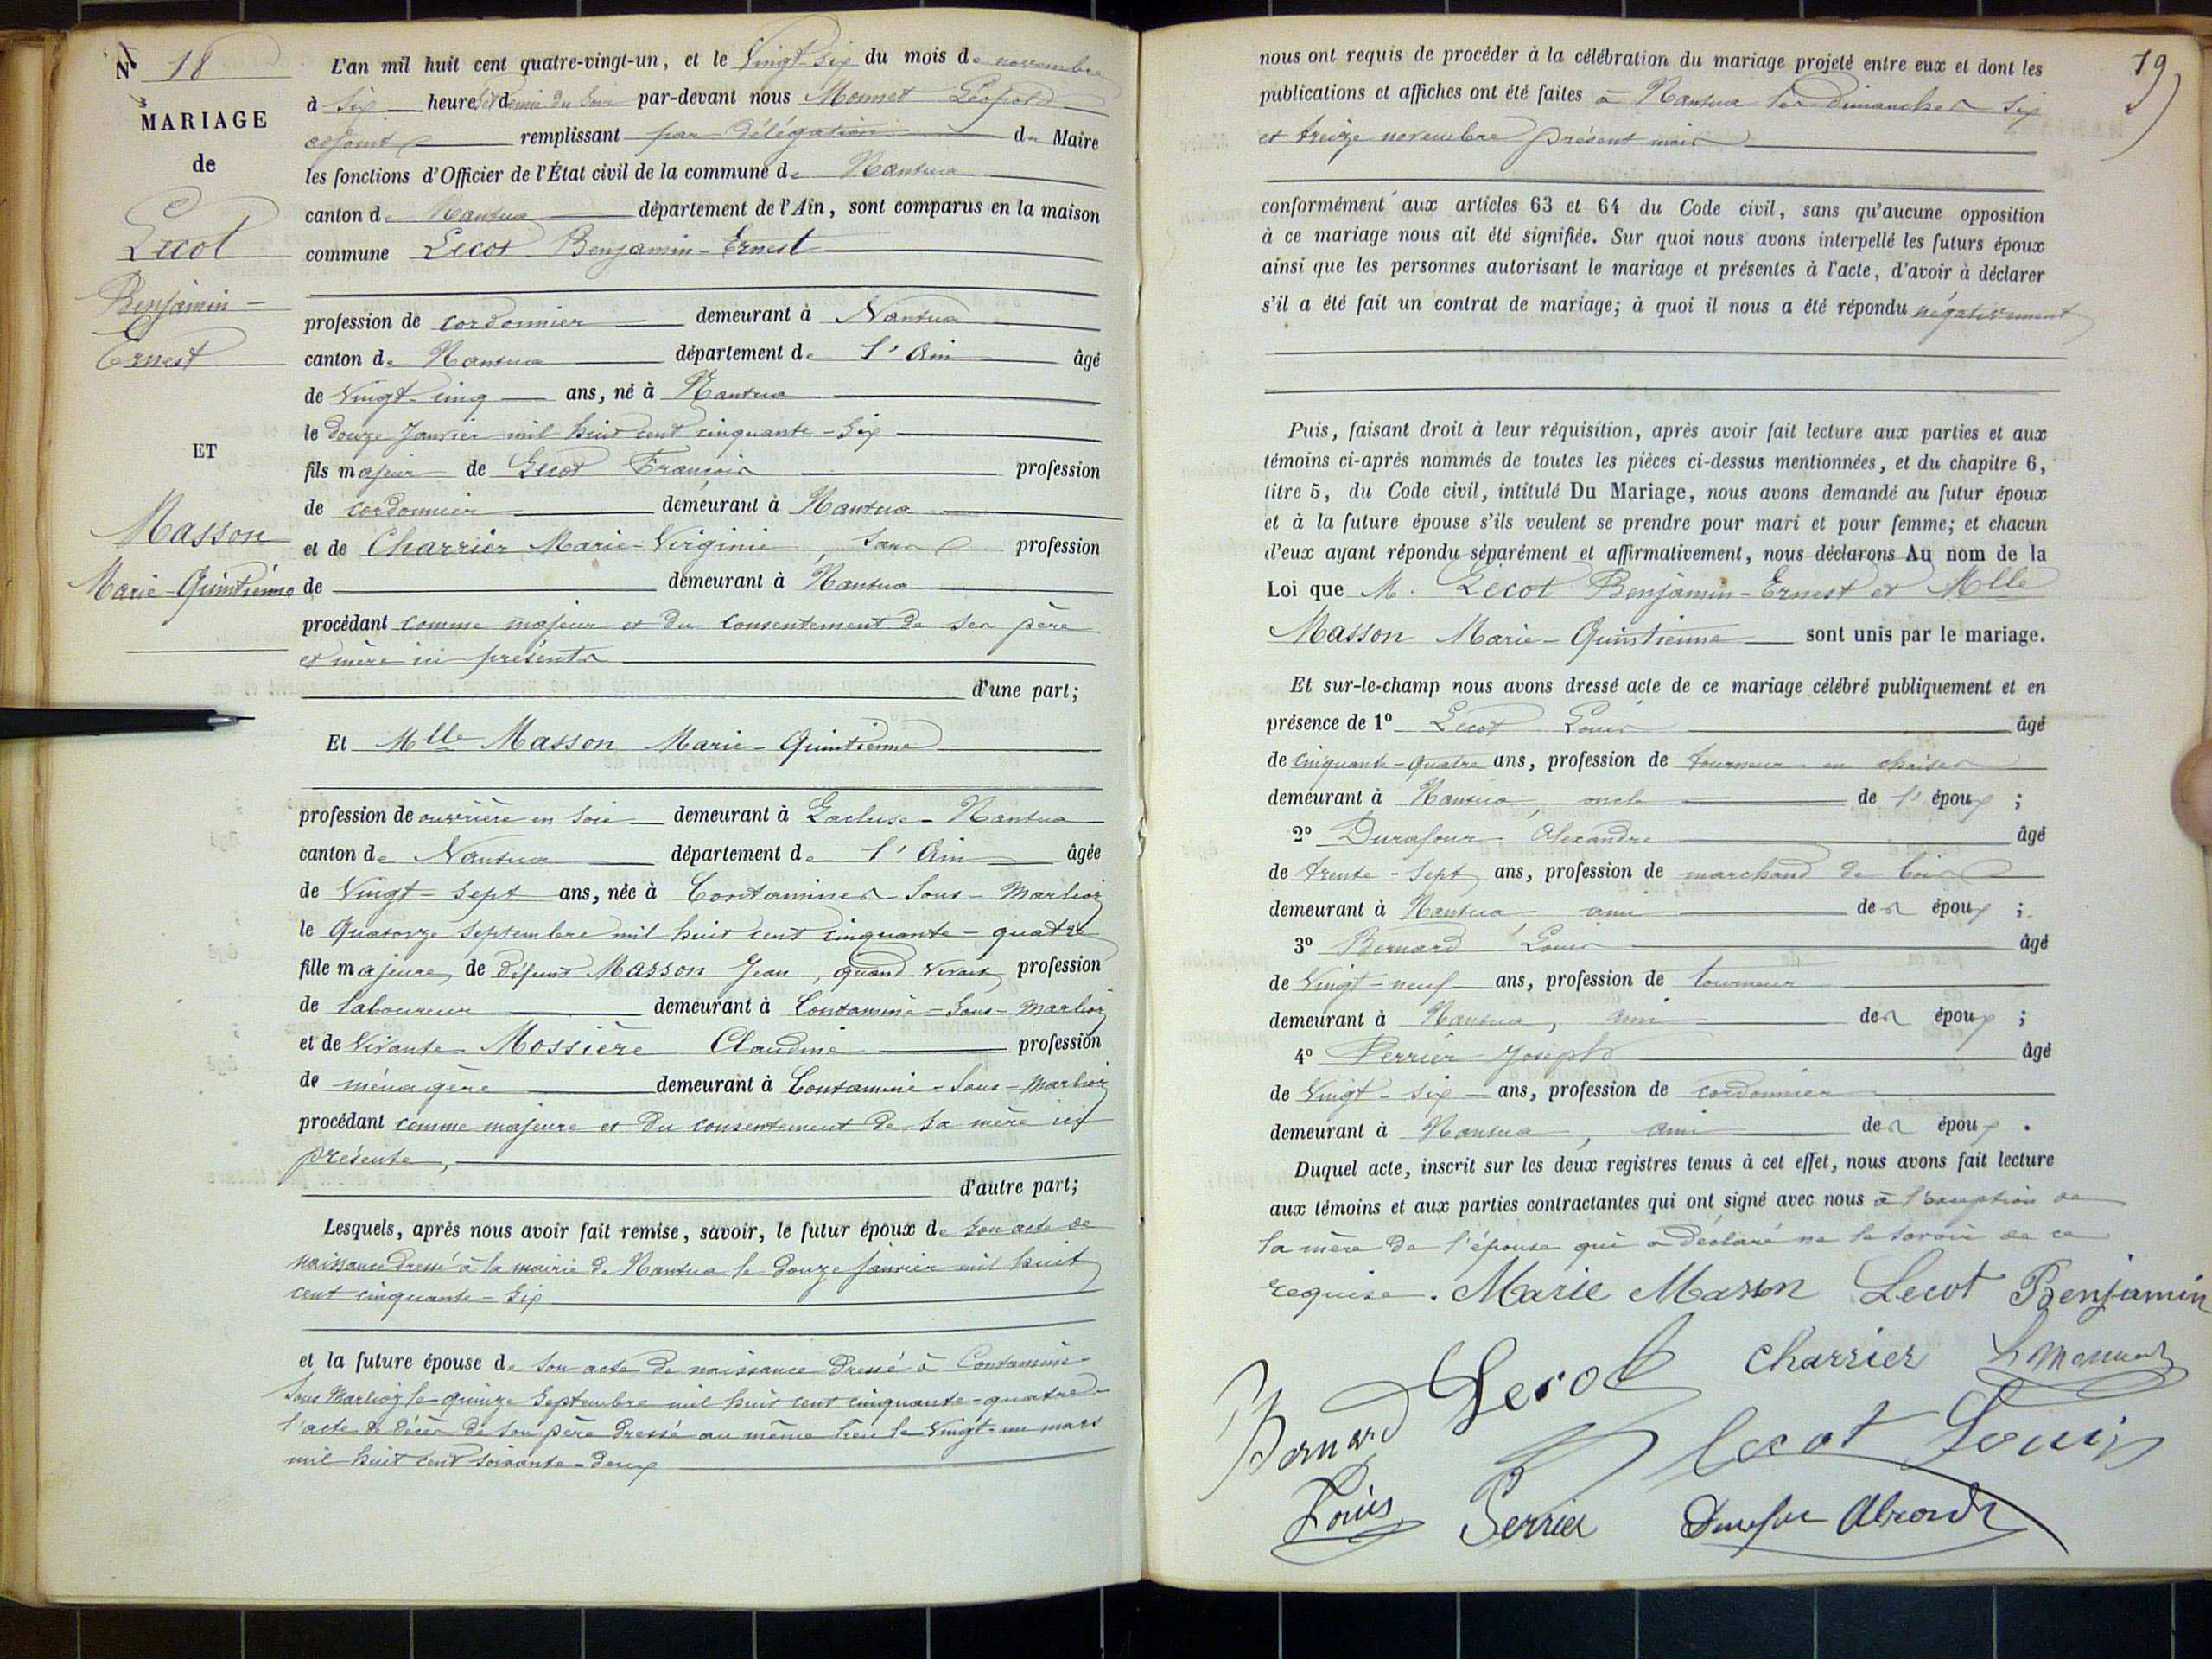 N 18
MARIAGE
de
Lecot
Benjamin-
Ernest
ET
Masson
Marie-Quintienne
L'an mil huit cent quatre-vingt-un, et le Vingt-six du mois de novembre
à six heures et demie du soir par-devant nous Monnet Léopold
adjoint remplissant par délégation du Maire
les fonctions d'Officier de l'État civil de la commune de Nantua
canton de Nantua département de l'Ain, sont comparus en la maison
commune Lecot Benjamin-Ernest
profession de cordonnier demeurant à Nantua
canton de Nantua département de l'Ain âgé
de Vingt-cinq ans, né à Nantua
le douze Janvier mil huit cent cinquante-six
fils majeur de Lecot François profession
de cordonnier demeurant à Nantua
et de Charrier Marie-Virginie, sans profession
de demeurant à Nantua
procédant comme majeur et du consentement de ses père
et mère ici présents
d'une part;
Et Mlle Masson Marie-Quintienne
profession de ouvrière en soie demeurant à Lacluse-Nantua
canton de Nantua département de l'Ain âgée
de Vingt-sept ans, née à Contamines-sous-Marlioz
le Quatorze septembre mil huit cent cinquante-quatre
fille majeure, de défunt Masson Jean, quand vivait, profession
de laboureur demeurant à Contamine-sous-Marlioz
et de vivante Mossière Claudine profession
de ménagère demeurant à Contamine-sous-Marlioz
procédant comme majeure et du consentement de sa mère ici
présente,
d'autre part;
Lesquels, après nous avoir fait remise, savoir, le futur époux de son acte de
naissance dressé à la mairie de Nantua le douze janvier mil huit
cent cinquante-six
et la future épouse de son acte de naissance dressé à Contamine
sous Marlioz le quinze septembre mil huit cent cinquante-quatre
l'acte de décès de son père dressé au même lieu le vingt-un mars
mil huit cent soixante-deux
19
nous ont requis de procéder à la célébration du mariage projeté entre eux et dont les
publications et affiches ont été faites à Nantua les dimanches six
et treize novembre présent mois
conformément aux articles 63 et 64 du Code civil, sans qu'aucune opposition
à ce mariage nous ait été signifiée. Sur quoi nous avons interpellé les futurs époux
ainsi que les personnes autorisant le mariage et présentes à l'acte, d'avoir à déclarer
s'il a été fait un contrat de mariage; à quoi il nous a été répondu négativement
Puis, faisant droit à leur réquisition, après avoir fait lecture aux parties et aux
témoins ci-après nommés de toutes les pièces ci-dessus mentionnées, et du chapitre 6,
titre 5, du Code civil, intitulé Du Mariage, nous avons demandé au futur époux
et à la future épouse s'ils veulent se prendre pour mari et pour femme; et chacun
d'eux ayant répondu séparément et affirmativement, nous déclarons Au nom de la
Loi que M. Lecot Benjamin-Ernest et Mlle
Masson Marie-Quintienne sont unis par le mariage.
Et sur-le-champ nous avons dressé acte de ce mariage célébré publiquement et en
présence de 1° Lecot Louis âgé
de cinquante-quatre ans, profession de tourneur en chaises
demeurant à Nantua, oncle de l'époux;
2° Durafour Alexandre âgé
de trente-sept ans, profession de marchand de bois
demeurant à Nantua ami des époux;
3° Bernard Louis âgé
de Vingt-neuf ans, profession de tourneur
demeurant à Nantua, ami des époux;
4° Perrier Joseph âgé
de Vingt-six ans, profession de cordonnier
demeurant à Nantua, ami des époux.
Duquel acte, inscrit sur les deux registres tenus à cet effet, nous avons fait lecture
aux témoins et aux parties contractantes qui ont signé avec nous à l'exception de
la mère de l'épouse qui a déclaré ne le savoir de ce
requise. Marie Masson Lecot Benjamin
Lecot Charrier L Monnet
Bernard Lecot Louis
Louis Perrier